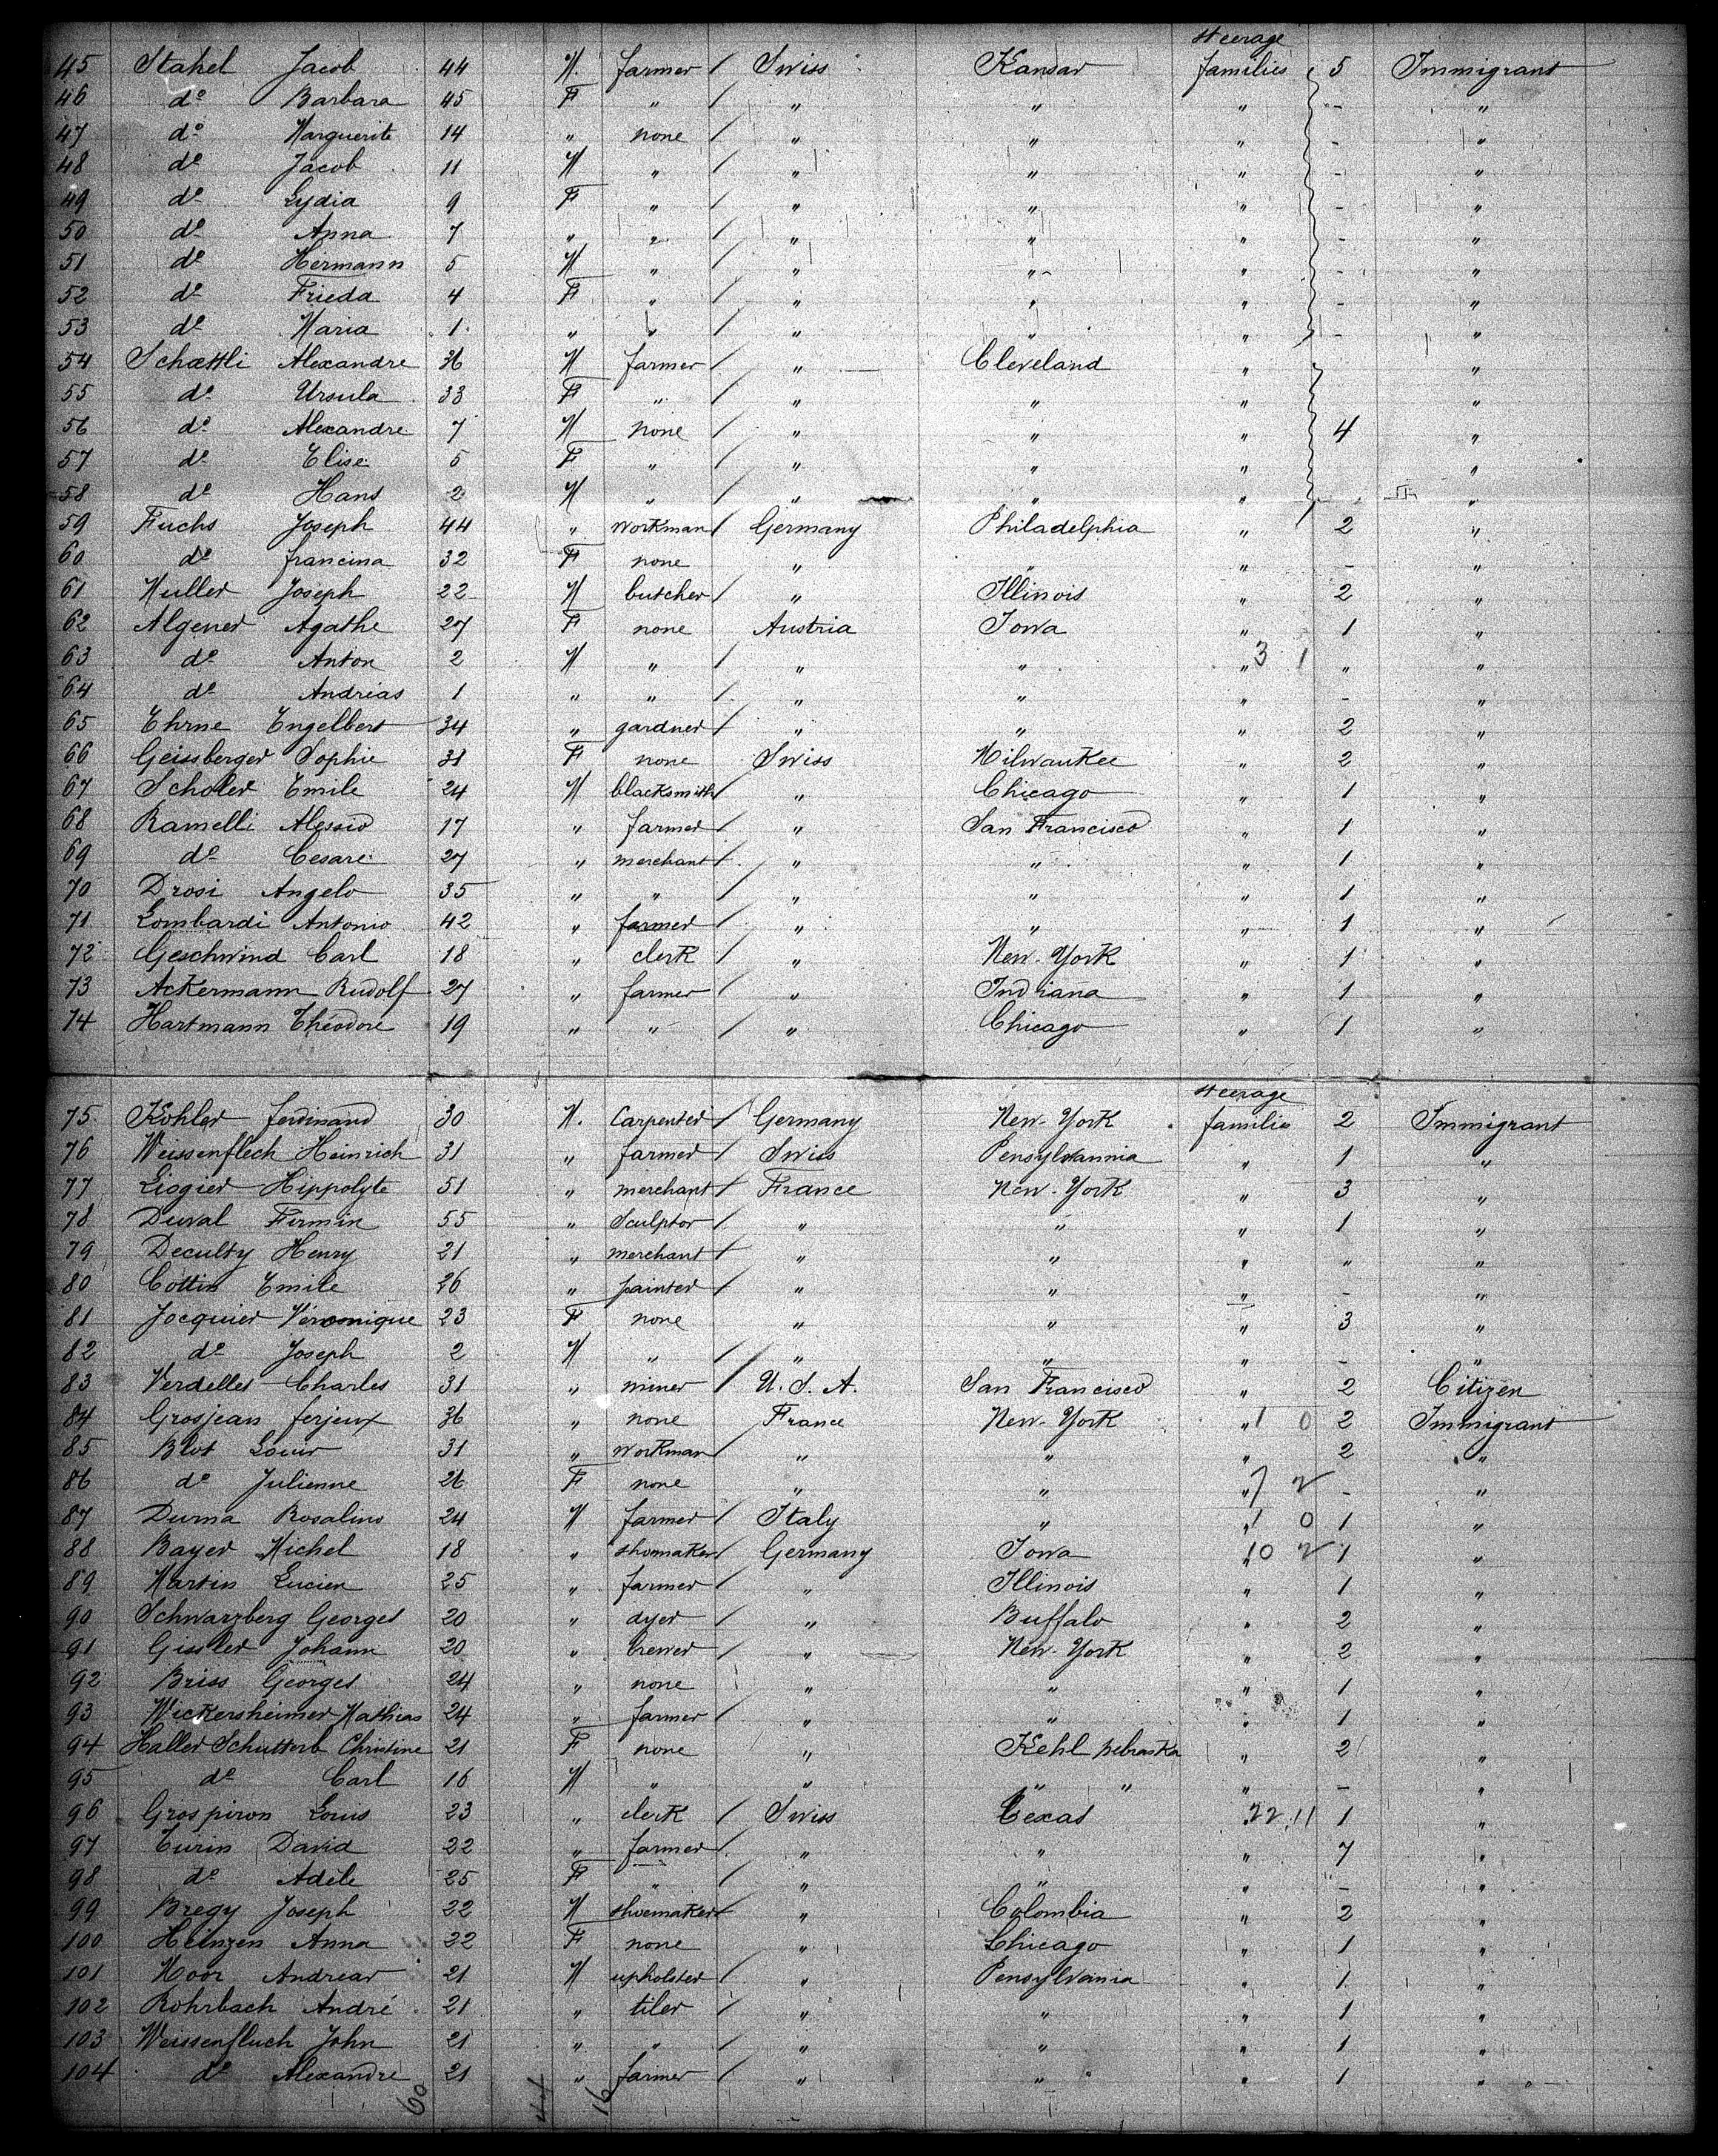 steerage
45 Stahel Jacob 44 M. farmer / Swiss Kansas families 5 Immigrant
46 do Barbara 45 F " / " " " - "
47 do Marguerite 14 " none / " " " - "
48 do Jacob 11 M " / " " " - "
49 do Lydia 9 F " / " " " - "
50 do Anna 7 " " / " " " - "
51 do Hermann 5 M " / " " " - "
52 do Frieda 4 F " / " " " - "
53 do Maria 1 " " / " " " - "
54 Schættli Alexandre 36 M farmer / " Cleveland " "
55 do Ursula 33 F " / " " " "
56 do Alexandre 7 M none / " " " 4 "
57 do Elise 5 F " / " " " "
58 do Hans 2 M " / " " " "
59 Fuchs Joseph 44 " workman / Germany Philadelphia " 2 "
60 do francina 32 F none " " " - "
61 Muller Joseph 22 M butcher / " Illinois " 2 "
62 Algener Agathe 27 F none Austria Iowa " 1 "
63 do Anton 2 M " / " " " 3 1 " "
64 do Andreas 1 " " / " " " - "
65 Ehrne Engelbert 34 " gardner / " " " 2 "
66 Geissberger Sophie 31 F none Swiss Milwaukee " 2 "
67 Scholer Emile 24 M blacksmith / " Chicago " 1 "
68 Ramelli Alessio 17 " farmer / " San Francisco " 1 "
69 do Cesare 27 " merchant / " " " 1 "
70 Drosi Angelo 35 " " / " " " 1 "
71 Lombardi Antonio 42 " farmer / " " " 1 "
72 Geschwind Carl 18 " clerk / " New-York " 1 "
73 Ackermann Rudolf 27 " farmer / " Indiana " 1 "
74 Hartmann Théodore 19 " " / " Chicago " 1 "
steerage
75 Kohler ferdinand 30 M. Carpenter / Germany New-York families 2 Immigrant
76 Weissenflech Heinrich 31 " farmer / Swiss Pensylvannia " 1 "
77 Liogier Hippolyte 51 " merchant / France New-York " 3 "
78 Duval Firmin 55 " Sculptor / " " " 1 "
79 Deculty Henry 21 " merchant / " " " " "
80 Cottin Emile 26 " painter / " " " - "
81 Jocquier Véronique 23 F none " " " 3 "
82 do Joseph 2 M " / " " " - "
83 Verdelles Charles 31 " miner / U. S. A. San Francisco " 2 Citizen
84 Grosjean ferjeux 36 " none France New-York " 1 0 2 Immigrant
85 Blot Louis 31 " workman / " " " 2 "
86 do Julienne 26 F none " " " 7 2 - "
87 Duma Rosalino 24 M farmer / Italy " " 1 0 1 "
88 Bayer Michel 18 " shoemaker / Germany Iowa " 10 2 1 "
89 Martin Lucien 25 " farmer / " Illinois " 1 "
90 Schwarzberg Georges 20 " dyer / " Buffalo " 2 "
91 Gussler Johann 20 " brewer / " New-York " 2 "
92 Briss Georges 24 " none " " " 1 "
93 Wickersheimer Mathias 24 " farmer / " " " 1 "
94 Haller Schutterb Christine 21 F none " Kehl Nebraska " 2 "
95 do Carl 16 M " " " " " - "
96 Grospiron Louis 23 " clerk / Swiss Texas " 22 11 1 "
97 Turin David 22 " farmer / " " " 7 "
98 do Adèle 25 F " " " " - "
99 Bregy Joseph 22 M shoemaker / " Colombia " 2 "
100 Heinzen Anna 22 F none " Chicago " 1 "
101 Moor Andreas 21 M upholster / " Pensylvania " 1 "
102 Rohrbach André 21 " tiler / " " " 1 "
103 Weissenfluch John 21 " " / " " " 1 "
104 do Alexandre 21 " farmer / " " " 1 "
60 44 16